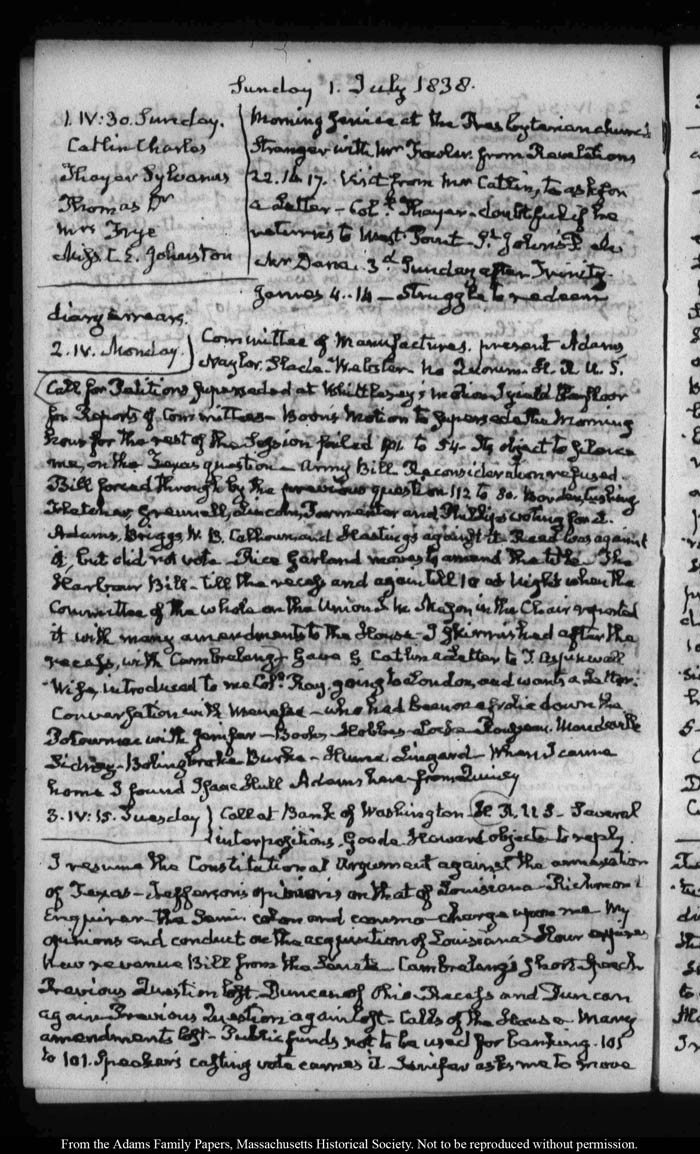 Sunday 1. July 1838.
1. IV:30. Sunday.
Catlin Charles
Thayer Sylvanus
Thomas Dr
Mrs Frye
Miss L. E. Johnston
Morning service at the Presbyterian church
Stranger with Mr Fowler from Revelations
22. 17. Visit from Mr Catlin, to ask for
a Letter - Col. Thayer - doubtful if he
returns to West Point - St. John's P.M.
Mr Dana. 3d Sunday after Trinity.
James 4. 14 - Struggle to redeem
diary arrears.
2. IV. Monday.
Committee of Manufactures. present Adams
Naylor. Slade. Webster. No Quorum. H. R. U. S.
Call for Petitions superseded at Whittlesey's motion I yield the floor
for Reports of Committees - Boon's Motion to supersede the Morning
hour for the rest of the Session failed 101 to 54 - Its object to silence
me, on the Texas question - Army Bill Reconsideration refused.
Bill forced through by the previous question 112 to 80. Borden, Cushing
Fletcher, Grennell, Lincoln, Parmenter and Phillips voting for it.
Adams, Briggs, W. B. Calhoun and Hastings against it Reed was against
it, but did not vote - Rice Garland moves to amend the title - The
Harbour Bill - till the recess and again till 10 at Night when the
Committee of the whole on the Union S. M. Mason in the Chair reported
it with many amendments to the House - I skirmished after the
recess, with Cambreleng - Gave G Catlin a Letter to T. Aspinwall
Wise, introduced to me Col. Ray, going to London, and wants a Letter:
Conversation with Menefee - who had been on a frolic down the
Potowmac with Jenifer - Books, Hobbes - Locke Rousseau, Mandeville
Sidney - Bolingbroke Burke - Hume. Lingard - When I came
home I found Isaac Hull Adams here from Quincy
3. IV:15. Tuesday
Call at Bank of Washington H. R. U S - Several
interpositions. Goode Howard objects to reply.
I resume the Constitutional Argument against the annexation
of Texas - Jefferson's opinions on that of Louisiana - Richmond
Enquirer - the Semi colon and comma charge upon me My
opinions and conduct on the acquisition of Louisiana - Hour expires
New revenue Bill from the Senate - Cambreleng's short speech
Previous Question lost. Duncan of Ohio - Recess and Duncan
again - Previous Question again lost - Calls of the House - Many
amendments lost - Public funds not to be used for banking. 101
to 101. Speaker's casting vote carries it. Jenifer asks me to move
From the Adams Family Papers, Massachusetts Historical Society. Not to be reproduced without permission.